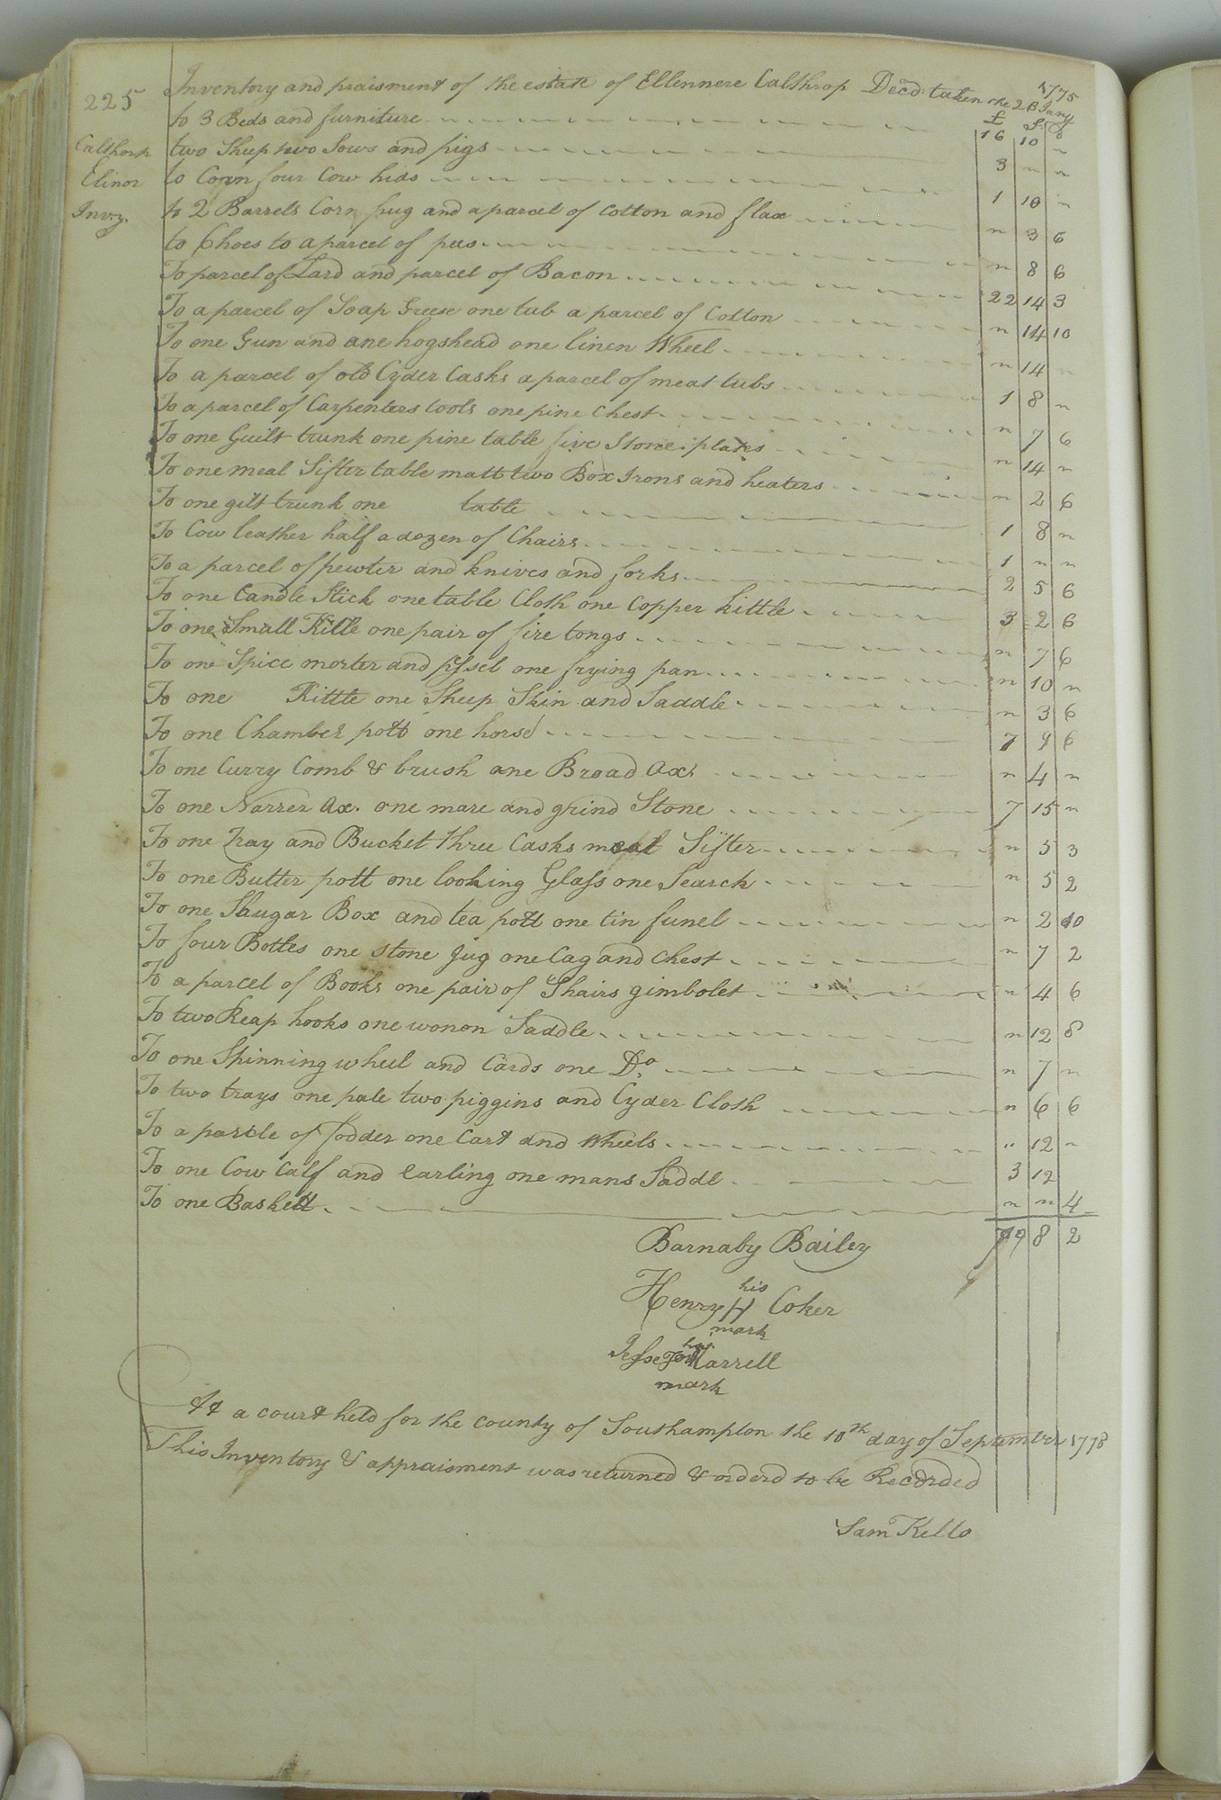 225
Calthorp
Elinor
Invy.
Inventory and praisment of the estate of Ellennere Calthrop Decd. taken the 28 Jany 1775
£ S d
to 3 Beds and furniture 16 10 "
two Sheep two Sows and pigs 3 " "
to Corn four Cow hids 1 10 "
to 2 Barrels Corn jug and a parcel of Cotton and flax " 3 6
to Shoes to a parcel of peas " 8 6
To parcel of Lard and parcel of Bacon 22 14 3
To a parcel of Soap Greese one tub a parcel of Cotton " 14 10
To one Gun and one hogshead one linen Wheel " 14 "
To a parcel of old Cyder Casks a parcel of meat tubs 1 8 "
To a parcel of Carpenters tools one pine Chest " 7 6
To one Guilt trunk one pine table five Stone plates " 14 "
To one meal Sifter table matt two Box Irons and heaters " 2 6
To one gilt trunk one table 1 8 "
To Cow leather half a dozen of Chairs 1 " "
To a parcel of pewter and knives and forks 2 5 6
To one Candle Stick one table Cloth one Copper kittle 3 2 6
To one Small Kitle one pair of fire tongs " 7 6
To one Spice morter and pessel one frying pan " 10 "
To one Kittle one Sheep Skin and Saddle " 3 6
To one Chamber pott one horse 7 9 6
To one Curry Comb & brush one Broad Ax " 4 "
To one Narrer Ax. one mare and grind Stone 7 15 "
To one Tray and Bucket three Casks meal Sifter " 5 3
To one Butter pott one looking Glass one Search " 5 2
To one Shugar Box and tea pott one tin funel " 2 10
To four Bottles one stone jug one Cag and Chest " 7 2
To a parcel of Books one pair of Shairs gimbolet " 4 6
To two Reap hooks one womon Saddle " 12 8
To one Spinning wheel and Cards one Do. " 7 "
To two trays one pale two piggins and Cyder Cloth " 6 6
To a parcle of fodder one Cart and Wheels " 12 "
To one Cow Calf and earling one mans Saddl 3 12
To one Baskett " " 4
79 8 2
Barnaby Bailey
his
Henry H Coker
mark
his
Jesse Harrell
mark
At a court held for the county of Southampton the 10th day of September 1778
This Inventory & appraisment was returned & orderd to be Recorded
Sam Kello